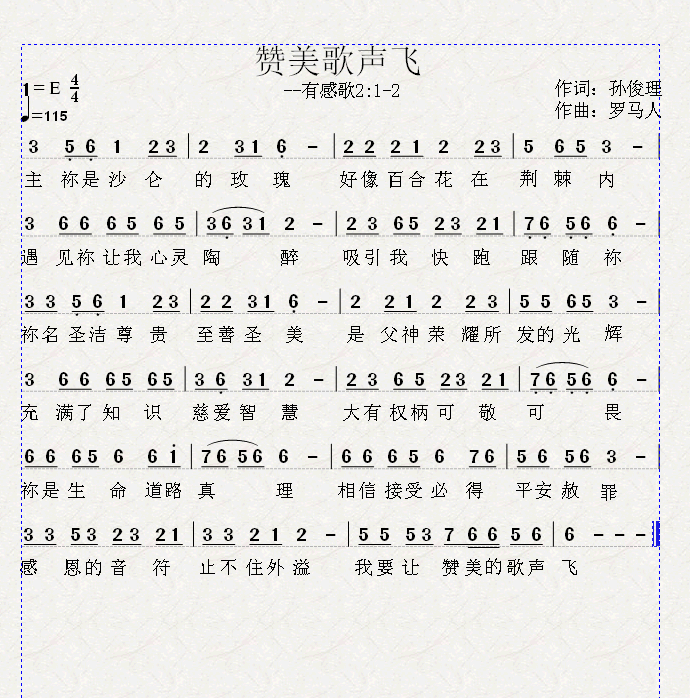 赞美歌声飞
--有感歌2:1-2
1=E 4/4
♩=115
作词：孙俊理
作曲：罗马人
3 5̣ 6̣ 1 2 3 | 2 3 1 6̣ – | 2 2 2 1 2 2 3 | 5 6 5 3 – |
主 祢是 沙 仑 的 玫 瑰 好像 百合 花 在 荆 棘 内
3 6 6 6 5 6 5 | 3 6̣ 3 1 2 – | 2 3 6 5 2 3 2 1 | 7̣ 6̣ 5̣ 6̣ 6̣ – |
遇 见祢 让我 心灵 陶 醉 吸引 我 快 跑 跟 随 祢
3 3 5̣ 6̣ 1 2 3 | 2 2 3 1 6̣ – | 2 2 1 2 2 3 | 5 5 6 5 3 – |
祢名 圣洁 尊 贵 至善 圣 美 是 父神 荣 耀所 发的 光 辉
3 6 6 6 5 6 5 | 3 6̣ 3 1 2 – | 2 3 6 5 2 3 2 1 | 7̣ 6̣ 5̣ 6̣ 6̣ – |
充 满了 知 识 慈爱 智 慧 大有 权柄 可 敬 可 畏
6 6 6 5 6 6 1̇ | 7 6 5 6 6 – | 6 6 6 5 6 7 6 | 5 6 5 6 3 – |
祢是 生 命 道路 真 理 相信 接受 必 得 平安 赦 罪
3 3 5 3 2 3 2 1 | 3 3 2 1 2 – | 5 5 5 3 7 6 6 5 6 | 6 – – – ‖
感 恩的 音 符 止不 住外 溢 我要 让 赞 美的 歌声 飞